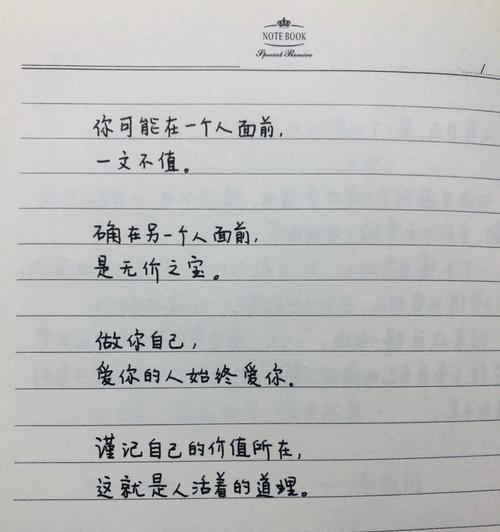 NOTE BOOK
Special Receive
你可能在一个人面前，
一文不值。
确在另一个人面前，
是无价之宝。
做你自己，
爱你的人始终爱你。
谨记自己的价值所在，
这就是人活着的道理。